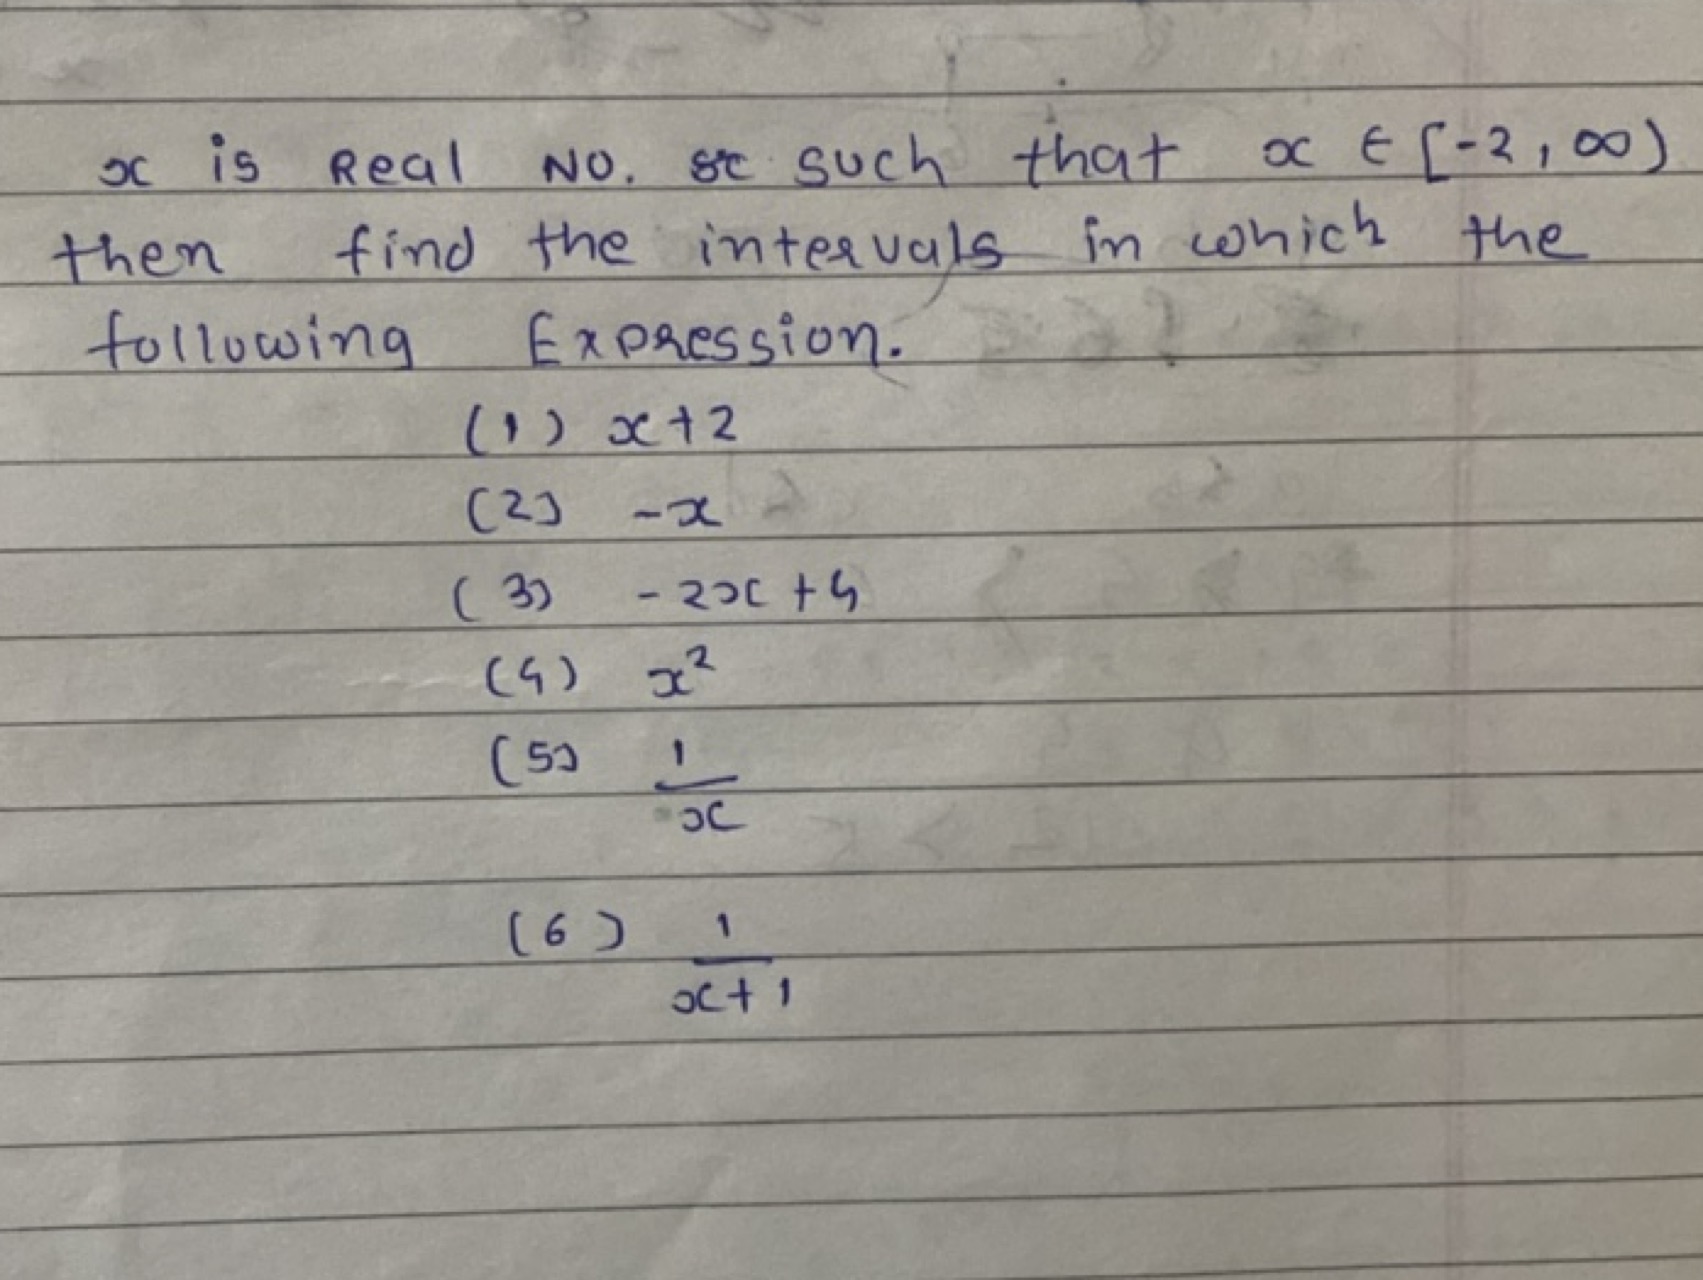 x is Real NO. such that x ∈ [-2, ∞)
then find the intervals in which the
following Expression.
(1) x+2
(2) -x
(3) -2x+4
(4) x²
(5) 1/x
(6) 1/x+1